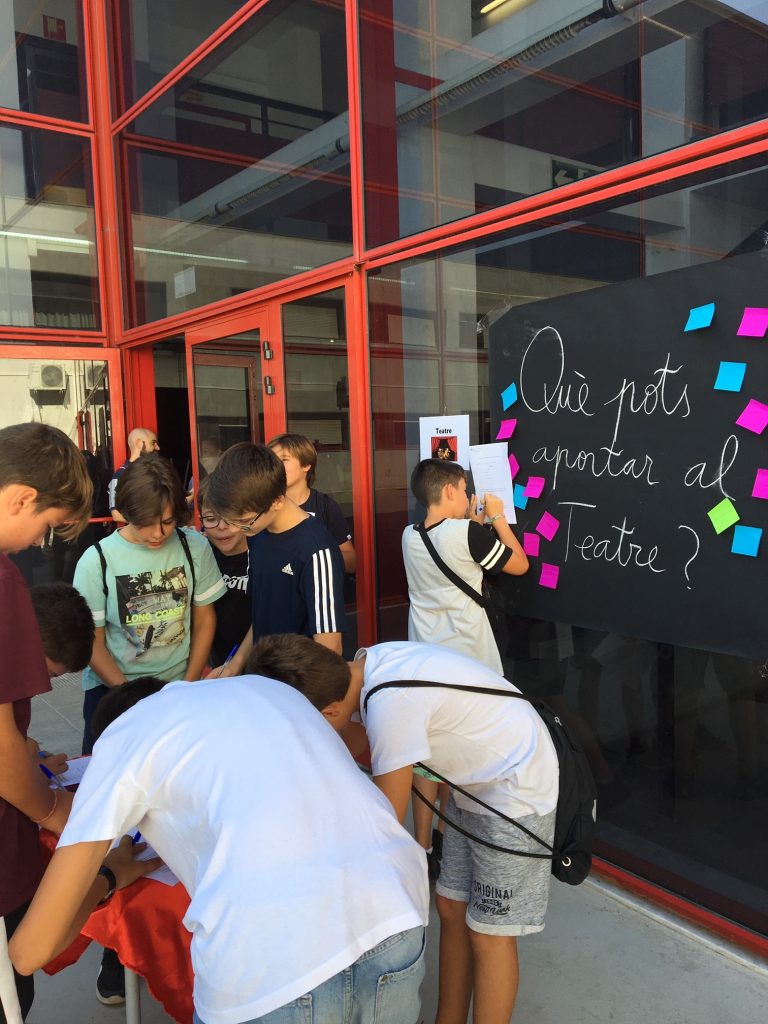 Què pots
aportar al
Teatre?
Teatre
LONG COAST
adidas
ORIGINAL